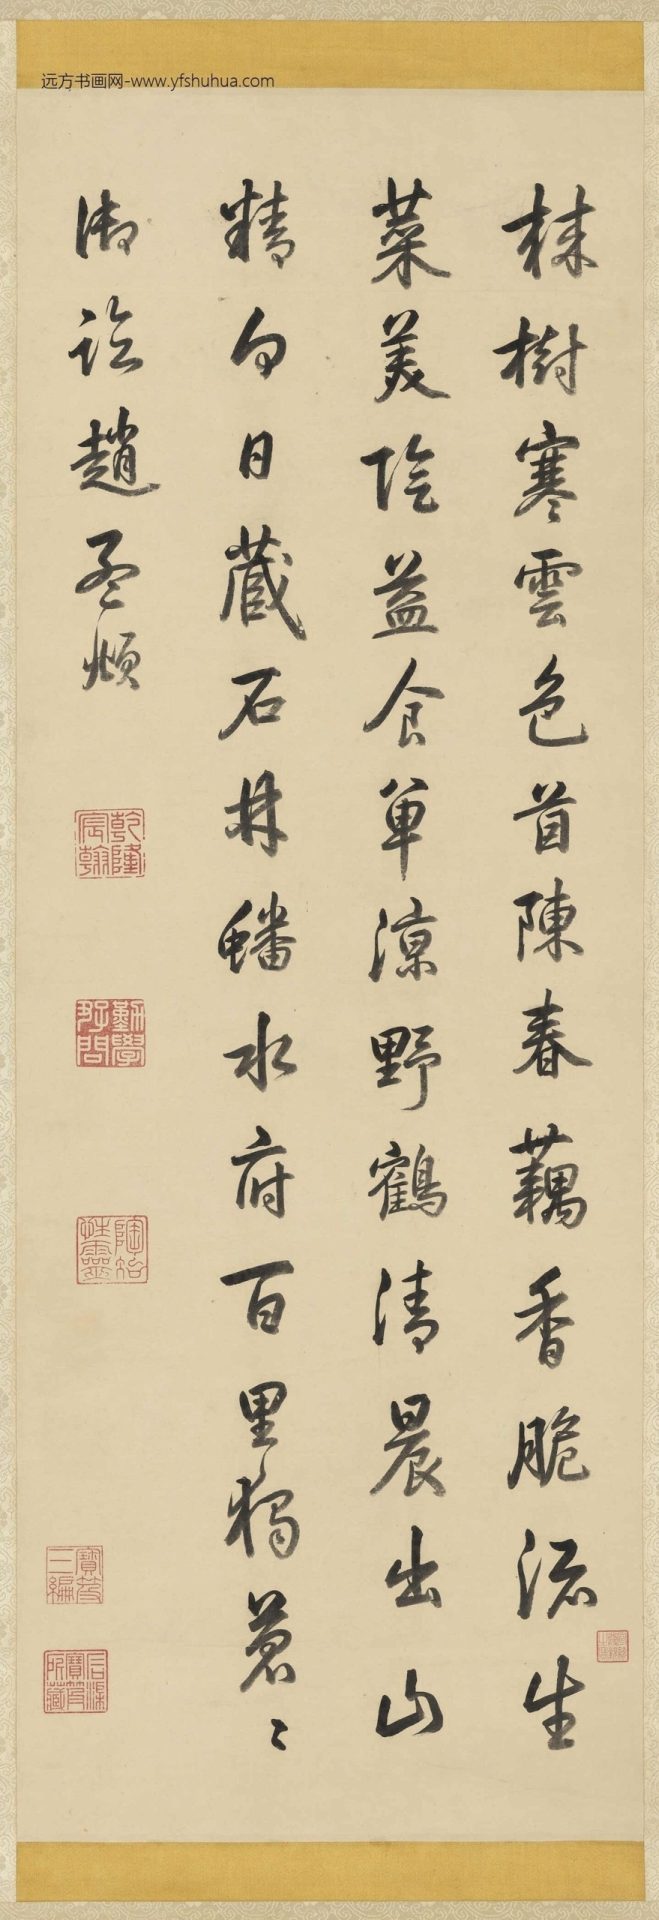 远方书画网-www.yfshuhua.com
栜樹寒雲色茵陳春藕香脆添生
菜美陰益食單涼野鶴清晨出山
精白日藏石林蟠水府百里獨蒼〻
御臨趙孟頫
乾隆宸翰
勤學好問
陶冶性靈
寶笈三編
石渠寶笈所藏